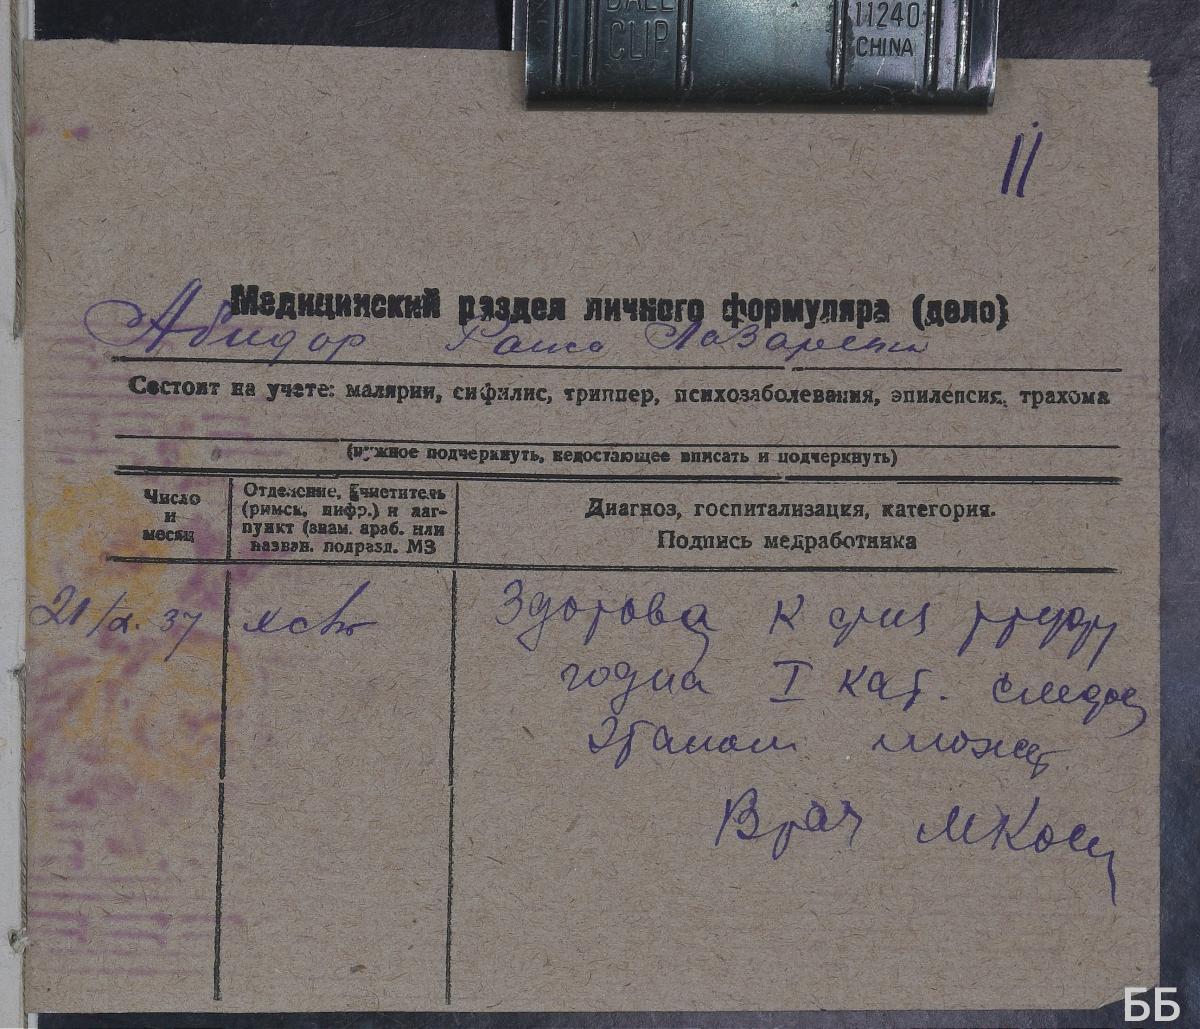 BALL
CLIP
11240
CHINA
11
Медицинский раздел личного формуляра (дело)
Абидор Раиса Лазаревна
Состоит на учете: малярии, сифилис, триппер, психозаболевания, эпилепсия, трахома
(нужное подчеркнуть, недостающее вписать и подчеркнуть)
Число
и
месяц
Отделение, Ечиститель
(римск. цифр.) и лаг-
пункт (знам. араб. или
назван. подразд. МЗ
Диагноз, госпитализация, категория.
Подпись медработника
21/ 37
Здорова к физ труду
годна I кат. следов
Этапом может
Врач
ББ